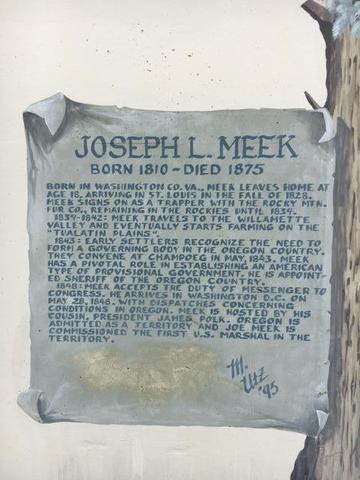 JOSEPH L. MEEK
BORN 1810 - DIED 1875
BORN IN WASHINGTON CO. VA., MEEK LEAVES HOME AT
AGE 18, ARRIVING IN ST. LOUIS IN THE FALL OF 1828.
MEEK SIGNS ON AS A TRAPPER WITH THE ROCKY MTN.
FUR CO., REMAINING IN THE ROCKIES UNTIL 1834.
1834-1842: MEEK TRAVELS TO THE WILLAMETTE
VALLEY AND EVENTUALLY STARTS FARMING ON THE
"TUALATIN PLAINS".
1843: EARLY SETTLERS RECOGNIZE THE NEED TO
FORM A GOVERNING BODY IN THE OREGON COUNTRY.
THEY CONVENE AT CHAMPOEG IN MAY, 1843. MEEK
HAS A PIVOTAL ROLE IN ESTABLISHING AN AMERICAN
TYPE OF PROVISIONAL GOVERNMENT. HE IS APPOINT-
ED SHERIFF OF THE OREGON COUNTRY.
1848: MEEK ACCEPTS THE DUTY OF MESSENGER TO
CONGRESS. HE ARRIVES IN WASHINGTON D.C. ON
MAY 28, 1848. WITH DISPATCHES CONCERNING
CONDITIONS IN OREGON. MEEK IS HOSTED BY HIS
COUSIN, PRESIDENT JAMES POLK. OREGON IS
ADMITTED AS A TERRITORY AND JOE MEEK IS
COMMISSIONED THE FIRST U.S. MARSHAL IN THE
TERRITORY.
M.
Utz
'95